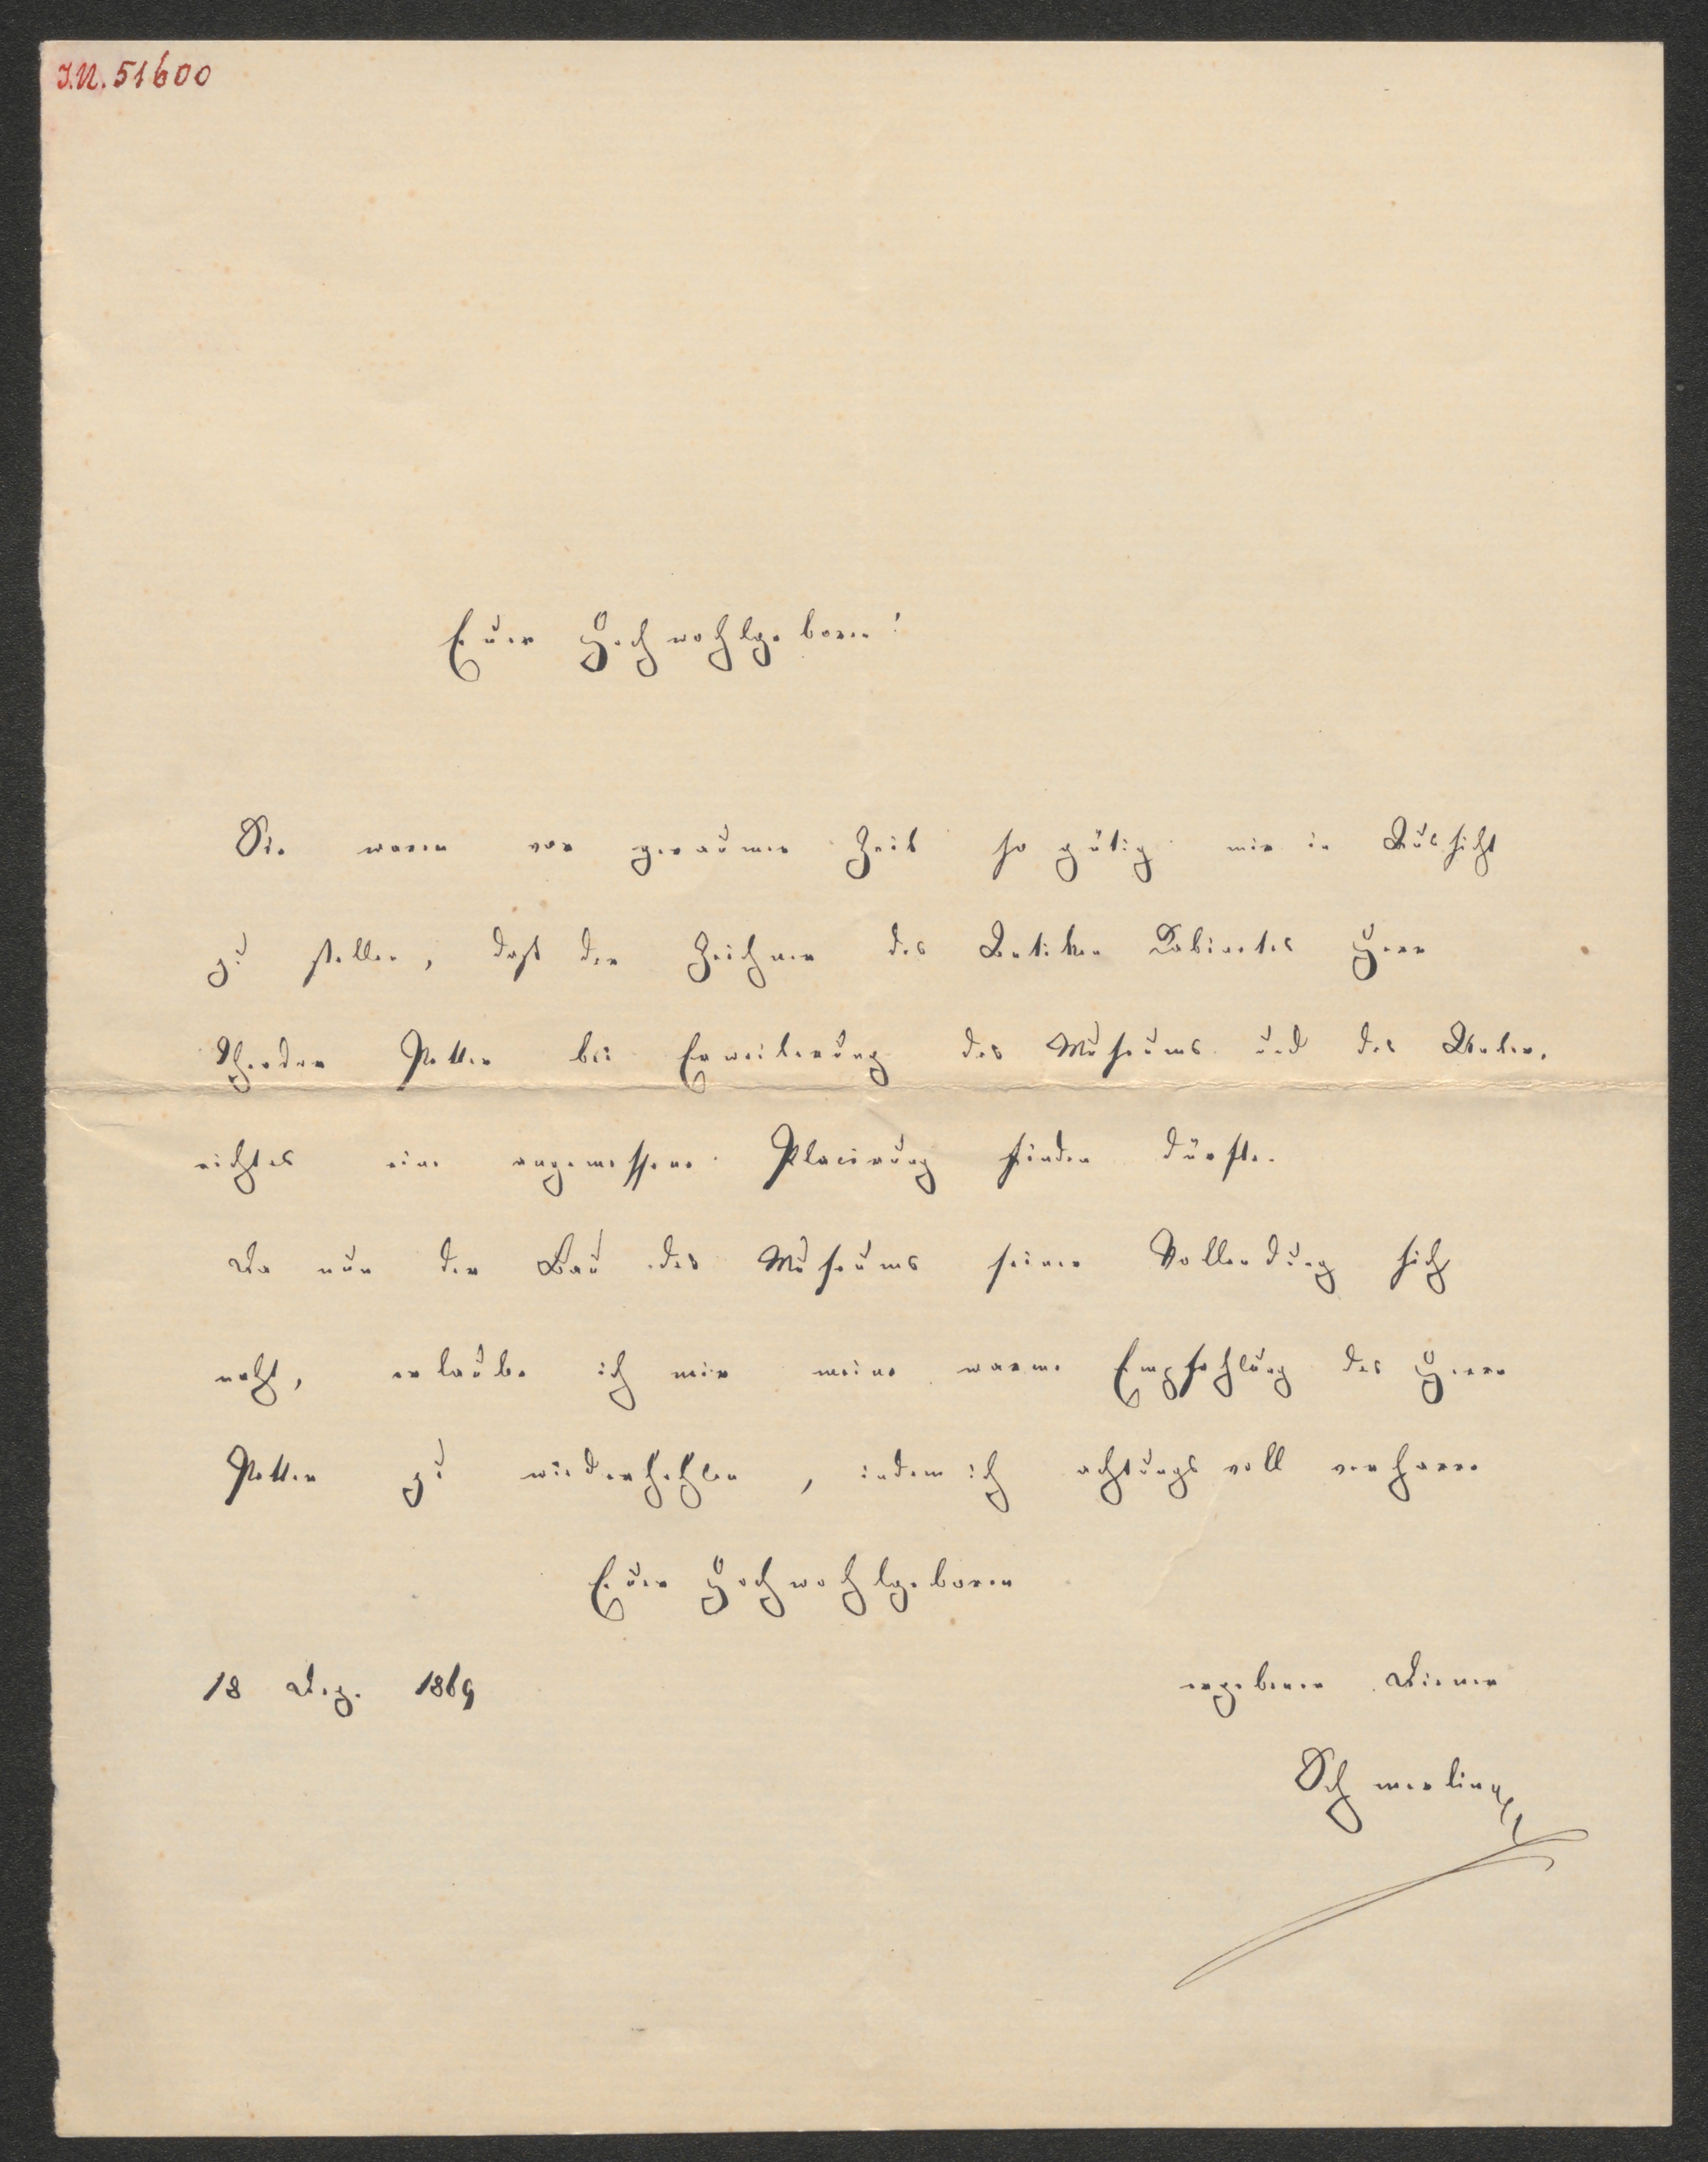 I.N. 51600
Euer Hochwohlgeboren!
Sie waren vor geraumer Zeit so gütig mir in Aussicht
zu stellen, daß der Zeichner des Antiken Kabinetes Herr
Theodor Petter bei Erweiterung des Museums und des Unter-
richtes eine angemessene Placirung finden dürfte.
Da nun der Bau des Museums seiner Vollendung sich
naht, erlaube ich mir meine warme Empfehlung des Herrn
Petter zu wiederhohlen, indem ich achtungsvoll verharre
Euer Hochwohlgeboren
18 Dez. 1869
ergebener Diener
Schmerling